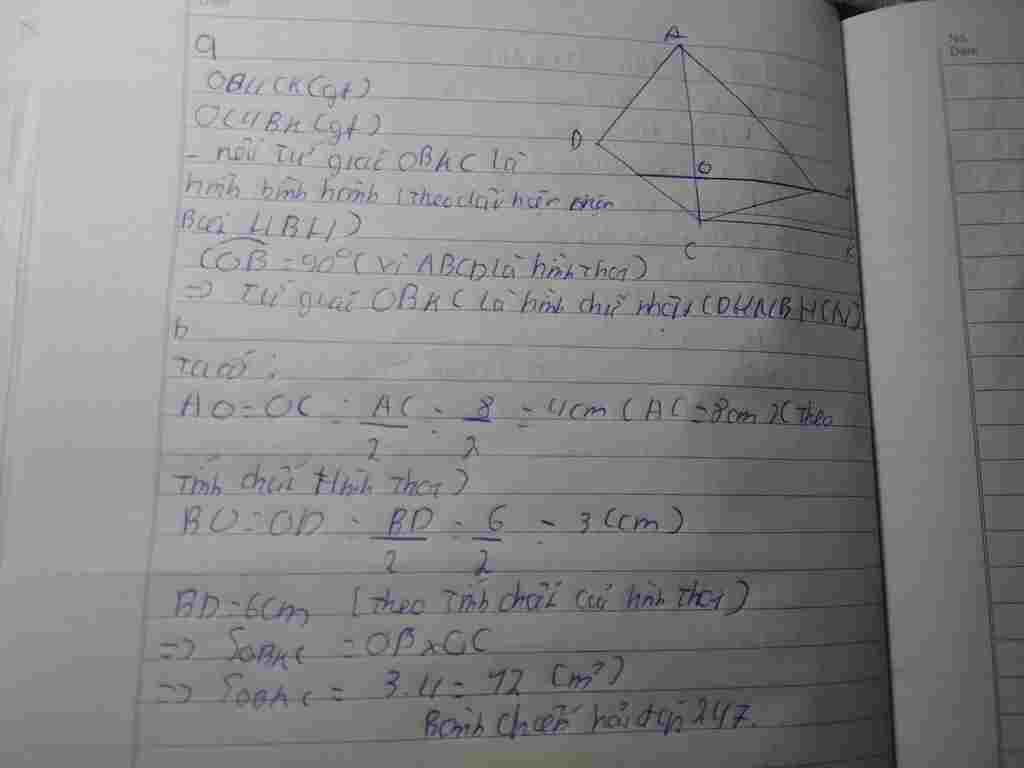 a
OB//CK(gt)
OC//BK(gt)
- nên Tứ giác OBKC là
hình bình hành (theo dấu hiệu nhận
Biết HBH)
COB = 90° (vì ABCD là hình thoi)
=> Tứ giác OBKC là hình chữ nhật (DHNBHCN)
b
Ta có:
AO = OC = AC/2 = 8/2 = 4cm (AC = 8cm (theo
Tính chất Hình Thoi)
BO = OD = BD/2 = 6/2 = 3 (cm)
BD = 6cm (theo Tính chất của hình Thoi)
=> SOBKC = OB x OC
=> SOBKC = 3.4 = 12 (cm²)
hỏi đáp 247.
A
D
O
C
K
No.
Date